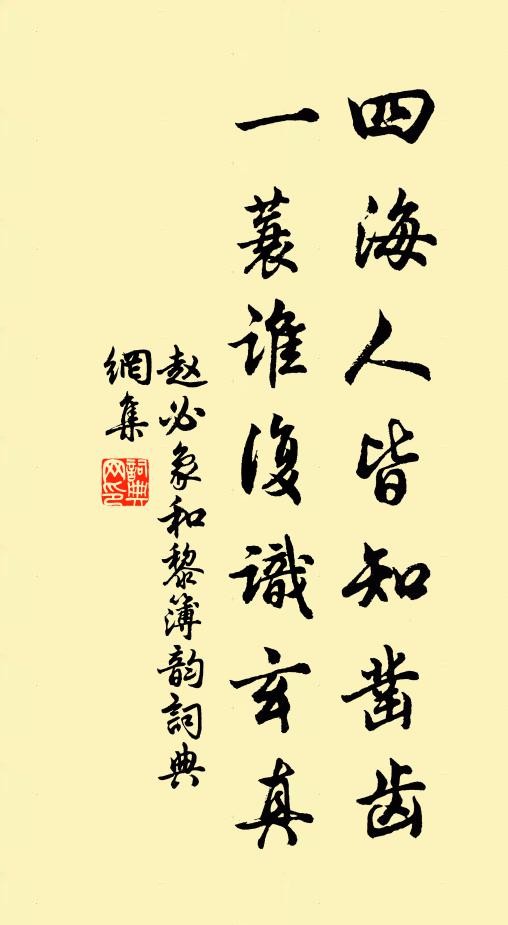 四海人皆知凿齿
一蓑谁復識玄真
赵必象和黎簿韵詞典
網集
詞典
网印